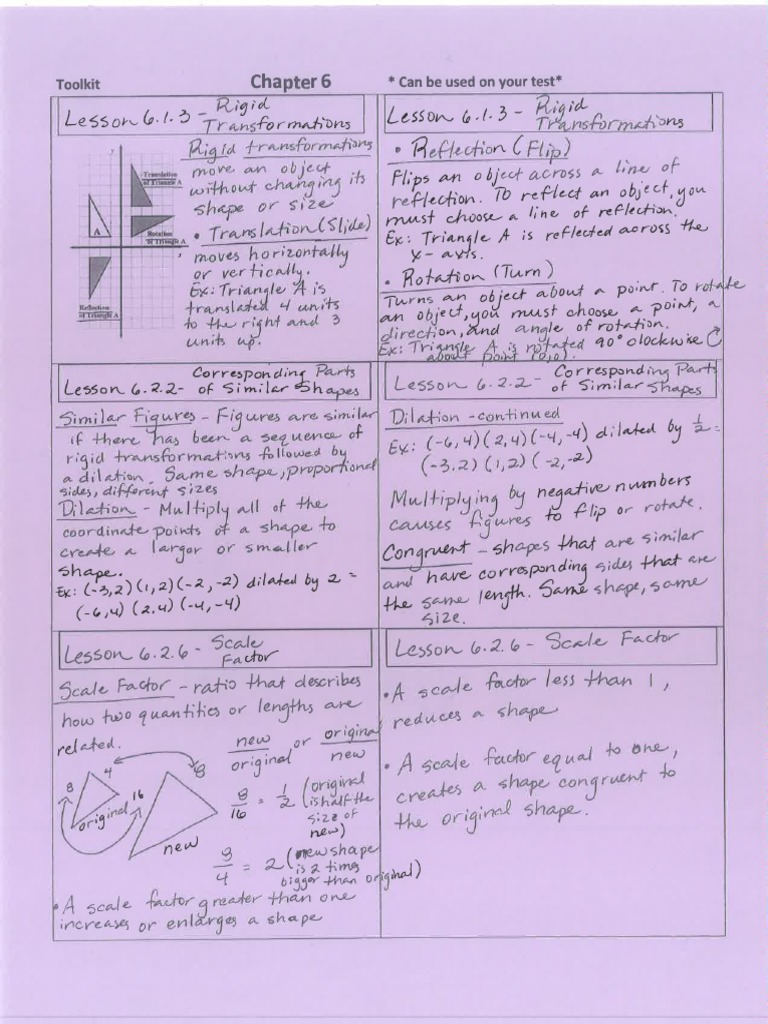 Toolkit Chapter 6 * Can be used on your test*
Lesson 6.1.3 - Rigid
Transformations
Translation
of Triangle A
A
Rotation
of Triangle A
Reflection
of Triangle A
y
x
Rigid transformations
move an object
without changing its
shape or size
• Translation (Slide)
moves horizontally
or vertically.
Ex: Triangle A is
translated 4 units
to the right and 3
units up.
Lesson 6.1.3 - Rigid
Transformations
• Reflection (Flip)
Flips an object across a line of
reflection. To reflect an object, you
must choose a line of reflection.
Ex: Triangle A is reflected across the
x-axis.
• Rotation (Turn)
Turns an object about a point. To rotate
an object, you must choose a point, a
direction, and angle of rotation.
Ex: Triangle A is rotated 90° clockwise
about point (0,0).
Lesson 6.2.2- Corresponding Parts
of Similar Shapes
Similar Figures - Figures are similar
if there has been a sequence of
rigid transformations followed by
a dilation. Same shape, proportional
sides, different sizes
Dilation - Multiply all of the
coordinate points of a shape to
create a larger or smaller
shape.
Ex: (-3,2) (1,2) (-2,-2) dilated by 2 =
(-6,4) (2,4) (-4,-4)
Lesson 6.2.2- Corresponding Parts
of Similar Shapes
Dilation -continued
Ex: (-6,4) (2,4) (-4,-4) dilated by 1/2 =
(-3,2) (1,2) (-2,-2)
Multiplying by negative numbers
causes figures to flip or rotate.
Congruent - shapes that are similar
and have corresponding sides that are
the same length. Same shape, same
size.
Lesson 6.2.6 - Scale
Factor
Scale Factor - ratio that describes
how two quantities or lengths are
related.
new/original or original/new
8 4 original
16 8 new
8/16 = 1/2 (original
is half the
size of
new)
8/4 = 2 (new shape
is 2 times
bigger than original)
• A scale factor greater than one
increases or enlarges a shape
Lesson 6.2.6 - Scale Factor
• A scale factor less than 1,
reduces a shape
• A scale factor equal to one,
creates a shape congruent to
the original shape.